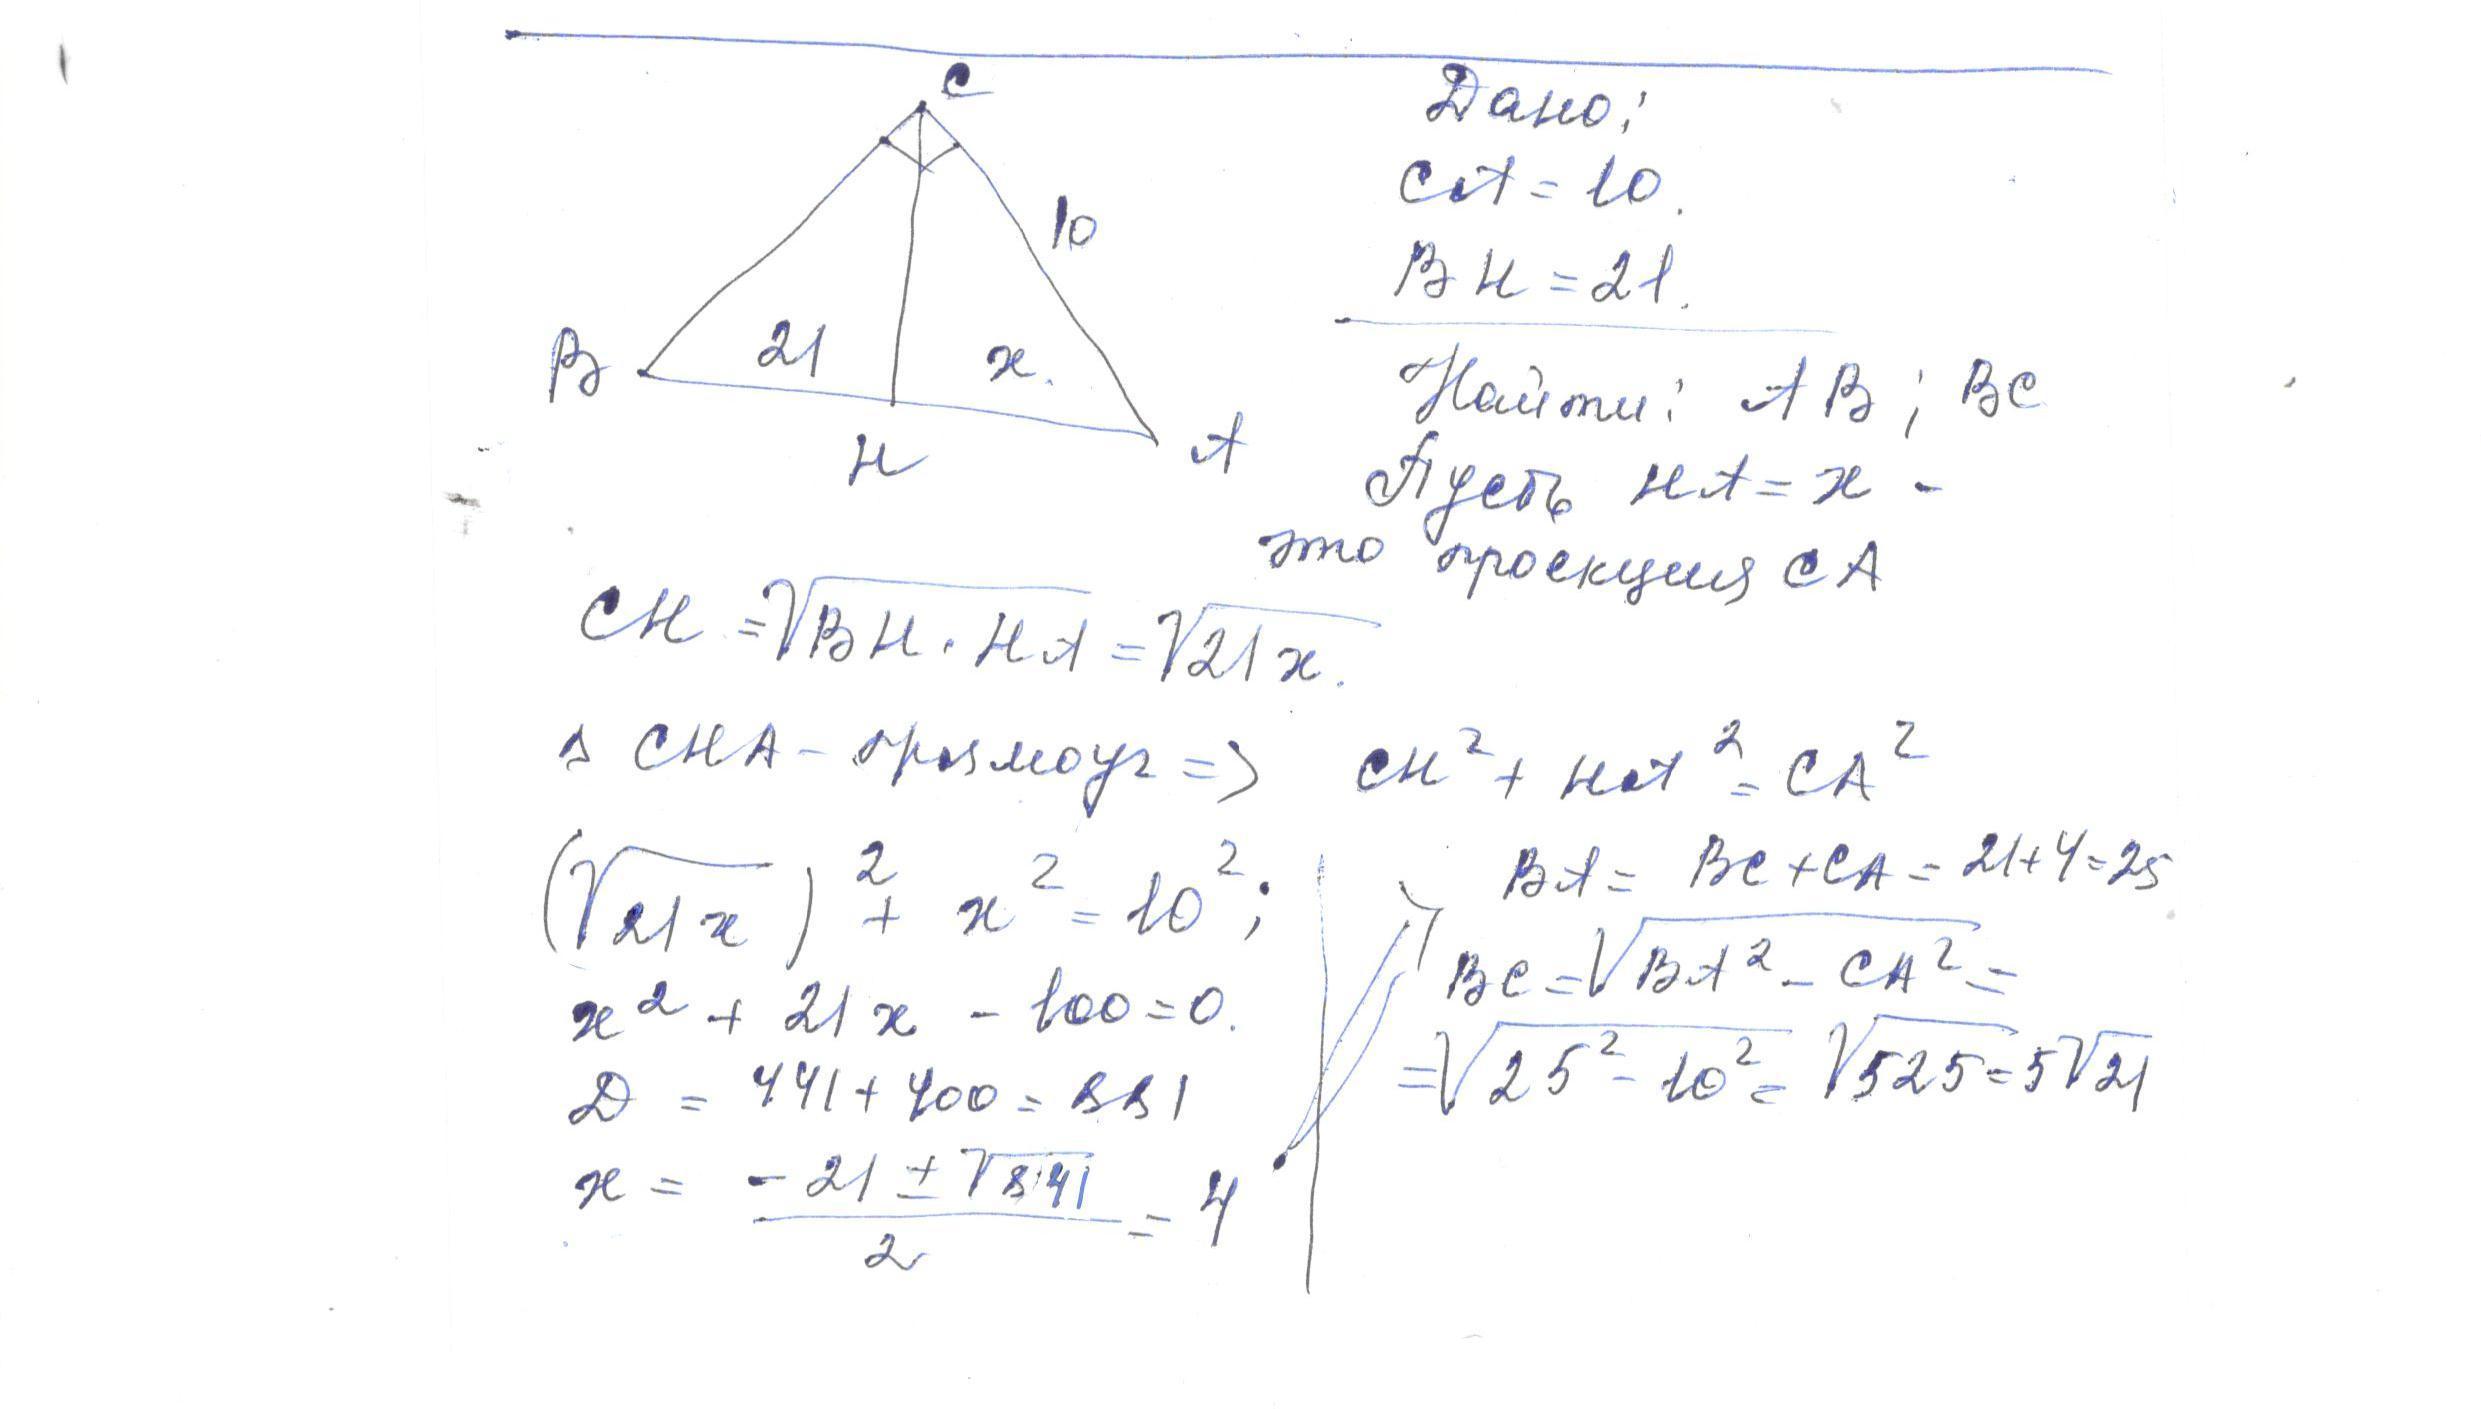 C
Дано:
CA = 10.
10
BH = 21.
B 21 x.
Найти: AB; BC
H A
Пусть HA = x -
это проекция CA
CH = √BH · HA = √21x.
△ CHA - прямоуг => CH² + HA² = CA²
(√21x)² + x² = 10²;
x² + 21x - 100 = 0.
D = 441 + 400 = 881
x = (-21 ± √841)/2 = 4
BA = BC + CA = 21 + 4 = 25
BC = √BA² - CA² =
= √25² - 10² = √525 = 5√21